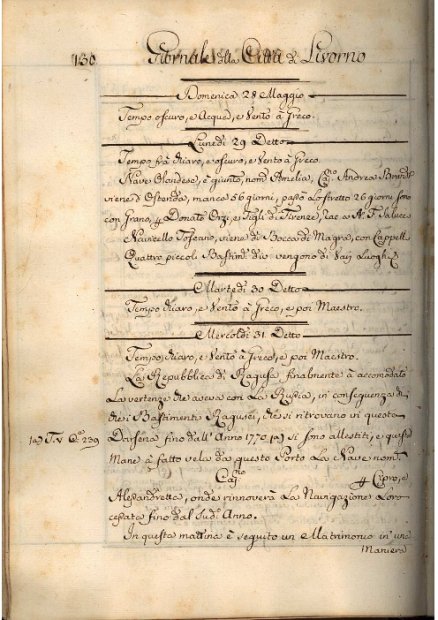 130 Giornale della Città di Livorno
Domenica 28 Maggio
Tempo oscuro, e Acque, e Vento à Greco.
Lunedì 29 Detto
Tempo frà chiaro, e oscuro, e Vento à Greco
Nave Olandese, è giunta, nom.ª Amelia, Cap.no Andrea
viene d'Ostenda, manca 56 giorni, passò lo stretto 26 giorni sono
con Grano, p Donato Orzi, e Figli di Firenze, rac. a A. F. Saluce
Navicello Toscano, viene di Bocca di Magra, con Cappelli
Quattro piccoli Bastim.ti div. vengono di Varj Luoghi
Martedì 30 Detto
Tempo chiaro, e Vento à Greco, e poi Maestro.
Mercoldì 31 Detto
Tempo chiaro, e Vento à Greco, e poi Maestro.
La Repubblica di Ragusa finalmente à accomodato
La vertenze che aveva con La Russia, in conseguenza di
che i Bastimenti Ragusei, che si ritrovano in questa
(a) T. V C. 239 Darsena fino dall' Anno 1770. (a) si sono allestiti, e questa
Mane à fatto vela da questo Porto La Nave nom.ª
Cap.no p Cipro, e
Alessandretta, onde rinnoverà La Navigazione Loro
cessata fino dal sud.º Anno.
In questa mattina è seguito un Matrimonio in una
Maniera